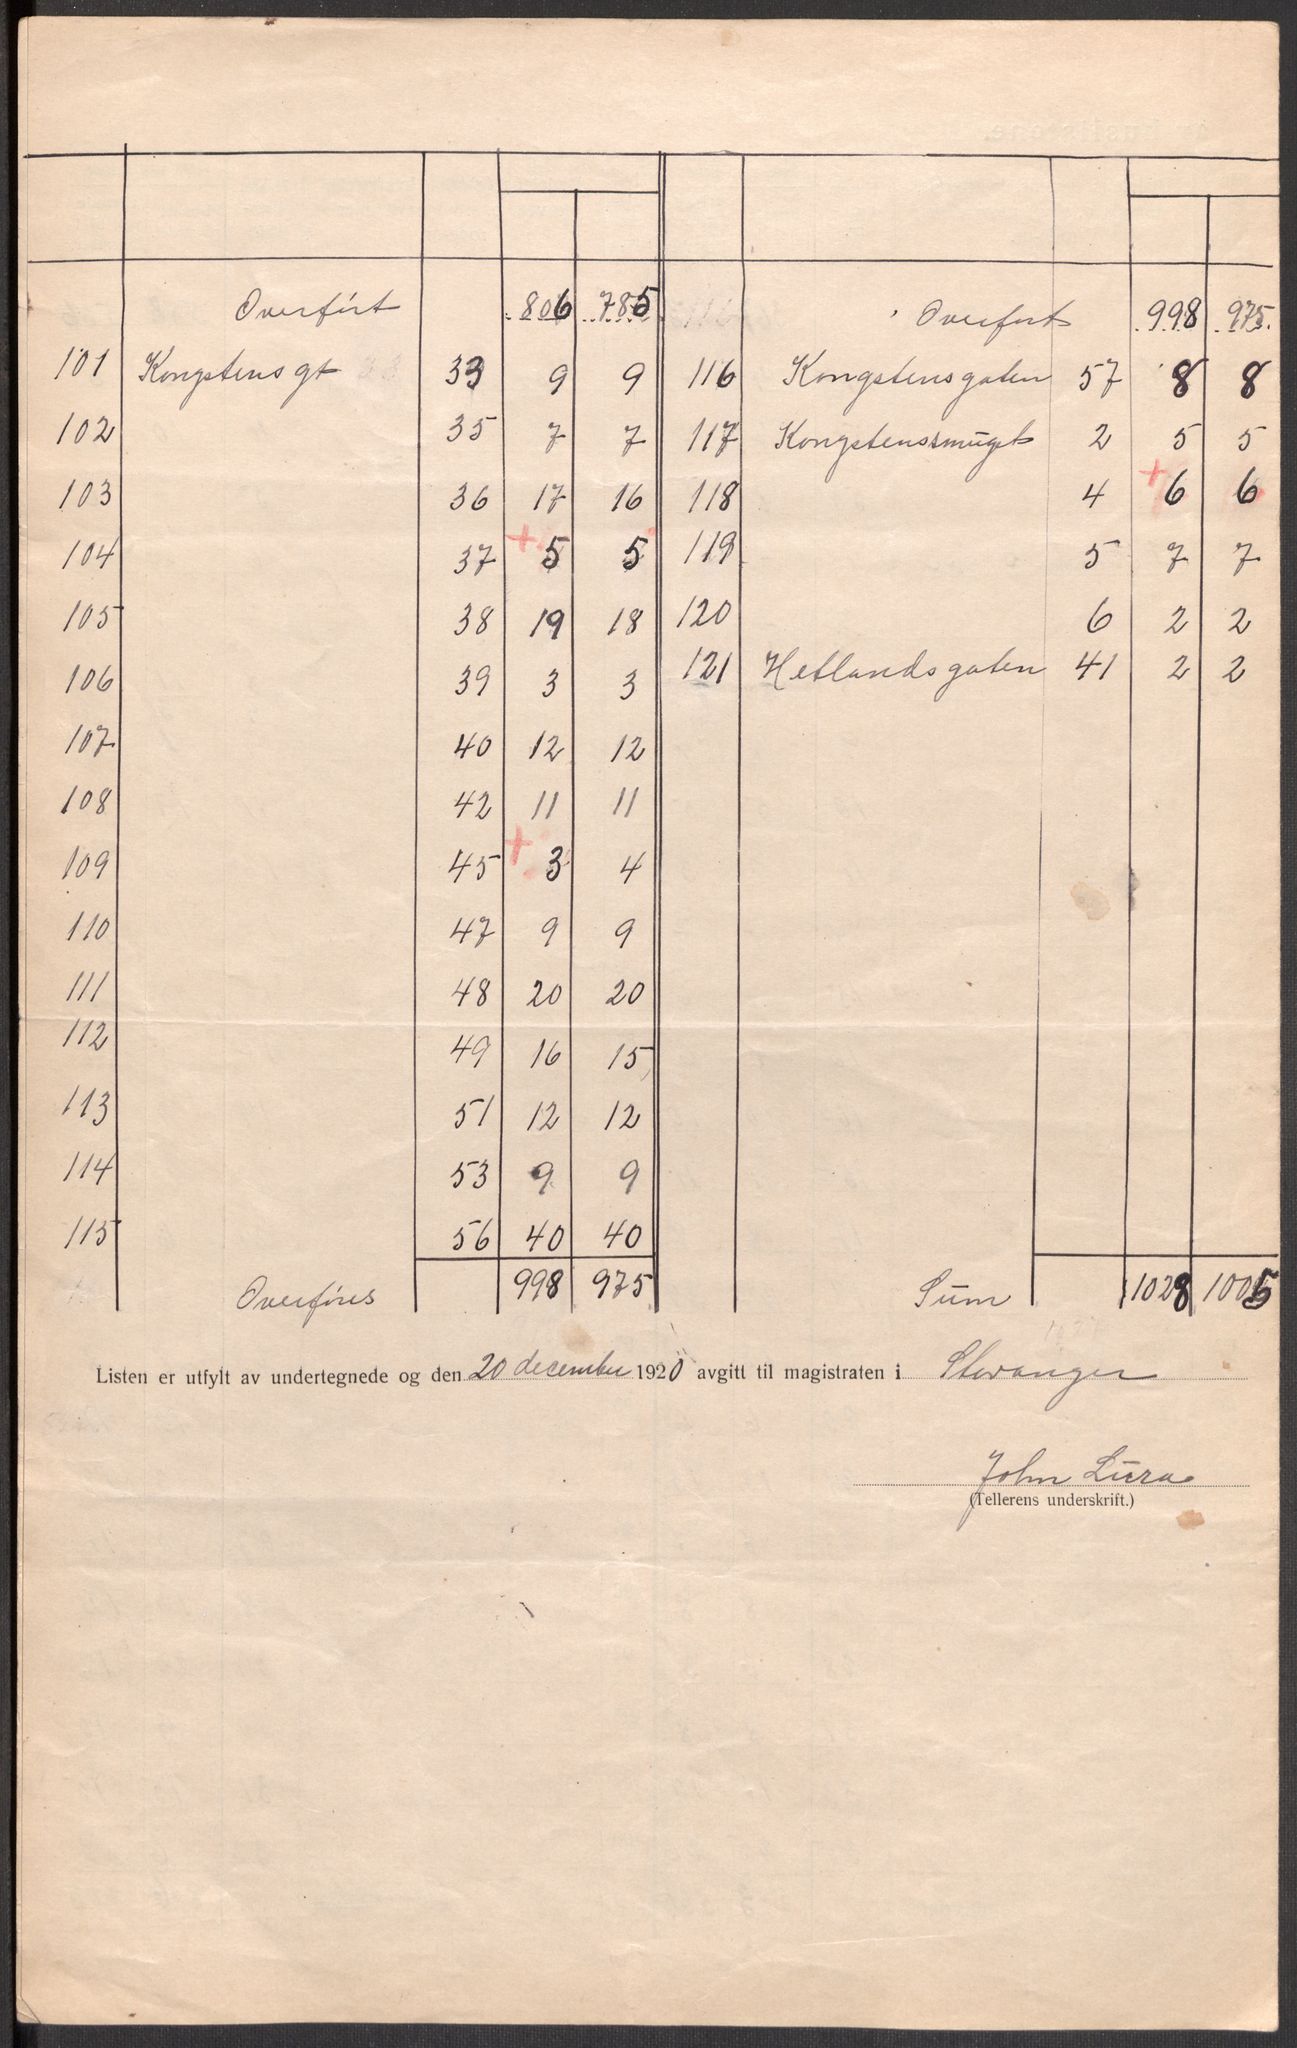 Overført 806 785
101 Kongstensgt 33 9 9
102 35 7 7
103 36 17 16
104 37 + 5 5
105 38 19 18
106 39 3 3
107 40 12 12
108 42 11 11
109 45 + 3 4
110 47 9 9
111 48 20 20
112 49 16 15
113 51 12 12
114 53 9 9
115 56 40 40
Overføres 998 975
Overført 998 975
116 Kongstensgaten 57 8 8
117 Kongstenssmuget 2 5 5
118 4 + 6 6
119 5 7 7
120 6 2 2
121 Hetlandsgaten 41 2 2
Sum 1028 1005
Listen er utfylt av undertegnede og den 20 december 1920 avgitt til magistraten i Stavanger
John Lura
(Tellerens underskrift.)